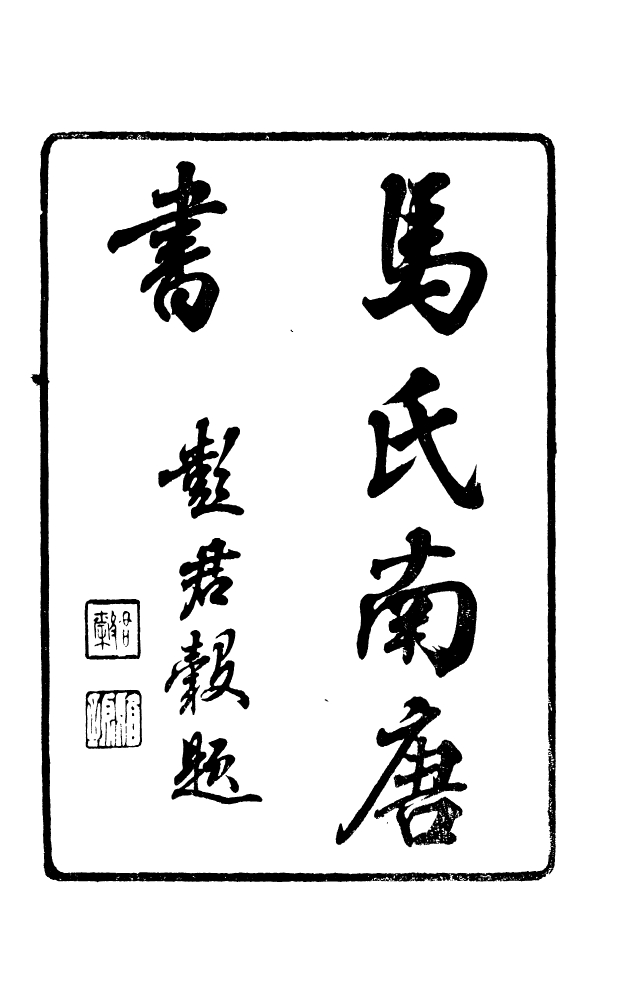 馬氏南唐
書
彭君穀題
君穀